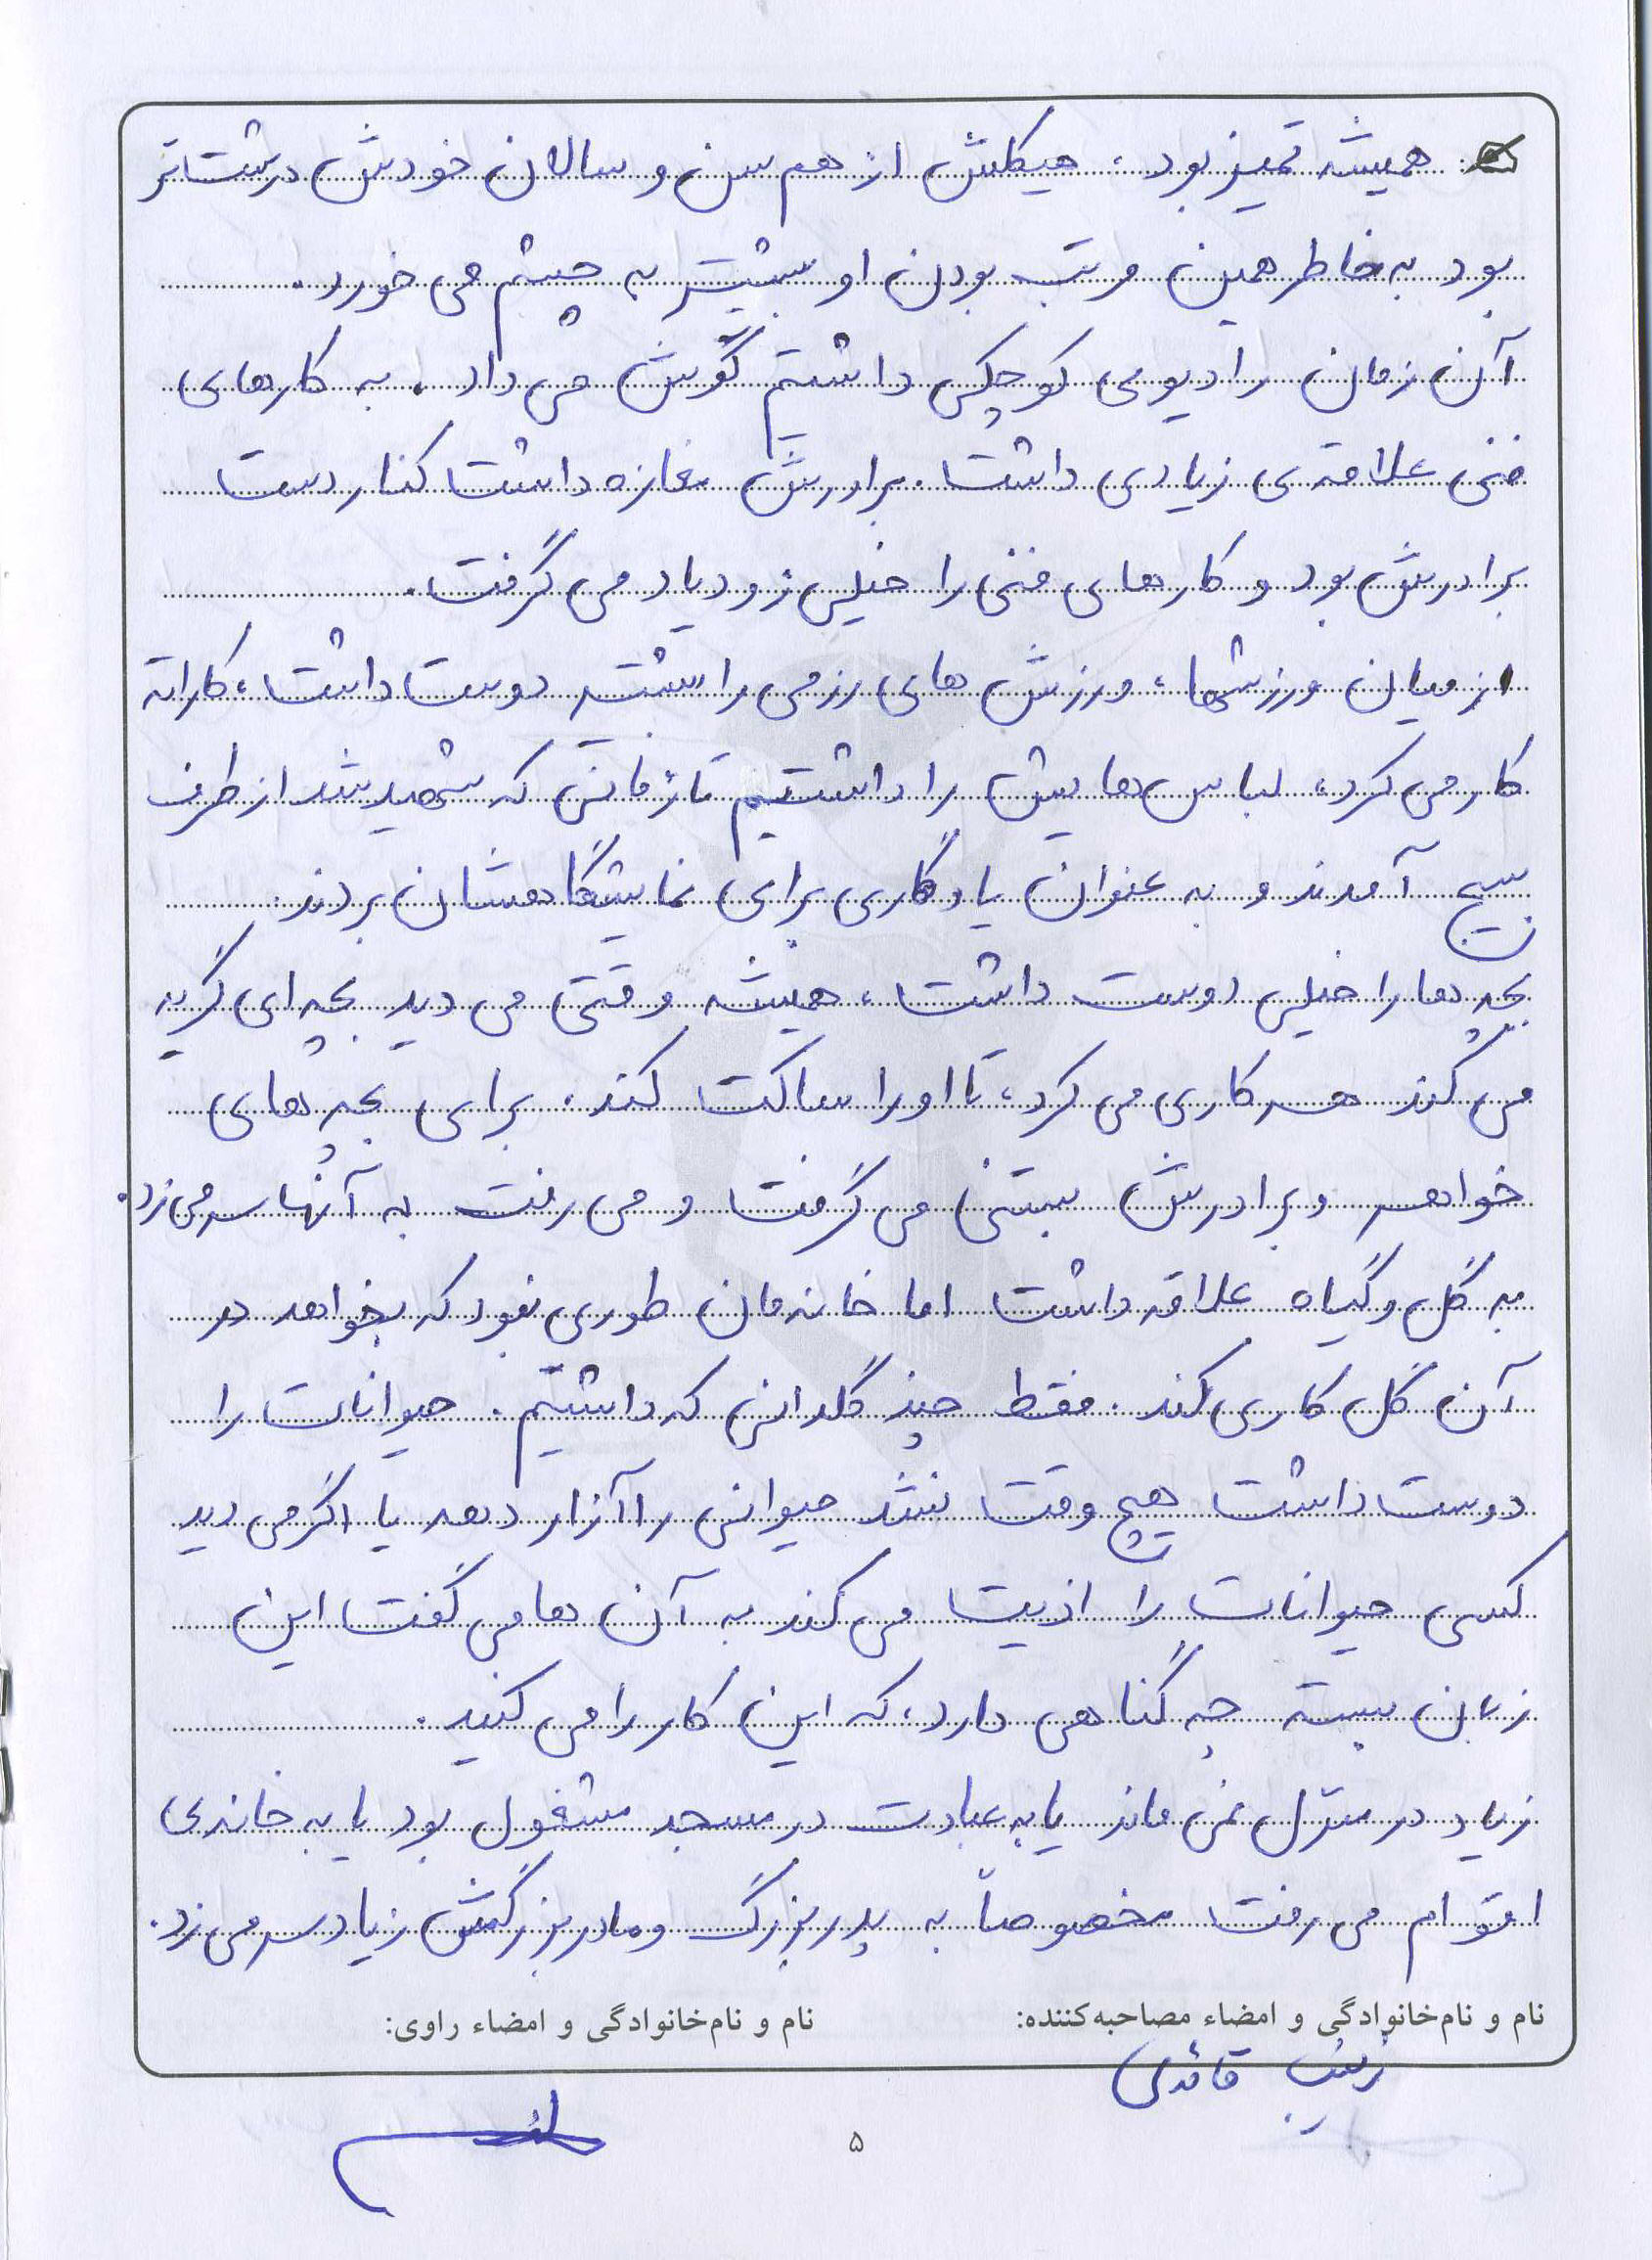 همیشه تمیز بود، هیکلش از هم سن و سالان خودش درشت‌تر
بود به خاطر همین مرتب بودن او بیشتر به چشم می خورد.
آن زمان رادیویی کوچکی داشتیم گوش می داد. به کارهای
فنی علاقه‌ی زیادی داشت. برادرش مغازه داشت کنار دست
برادرش بود و کارهای فنی را خیلی زود یاد می گرفت.
از میان ورزشها، ورزش های رزمی را بیشتر دوست داشت، کاراته
کار می کرد، لباس هایش را داشتیم تا زمانی که شهید شد از طرف
بسیج آمدند و به عنوان یادگاری برای نمایشگاهشان بردند.
بچه ها را خیلی دوست داشت، همیشه وقتی می دید بچه ای گریه
می کند هر کاری می کرد، تا او را ساکت کند. برای بچه های
خواهر و برادرش بستنی می گرفت و می رفت به آنها سر می زد.
به گل و گیاه علاقه داشت اما خانه مان طوری نبود که بخواهد در
آن گل کاری کند. فقط چند گلدانی که داشتیم. حیوانات را
دوست داشت هیچ وقت نشد حیوانی را آزار دهد یا اگر می دید
کسی حیوانات را اذیت می کند به آن ها می گفت این
زبان بسته چه گناهی دارد، که این کار را می کنید.
زیاد در منزل نمی ماند یا به عبادت در مسجد مشغول بود یا به خانه‌ی
اقوام می رفت مخصوصاً به پدربزرگ و مادربزرگش زیاد سر می زد.
نام و نام‌خانوادگی و امضاء مصاحبه‌کننده:
نام و نام‌خانوادگی و امضاء راوی:
زینب قائدی
۵